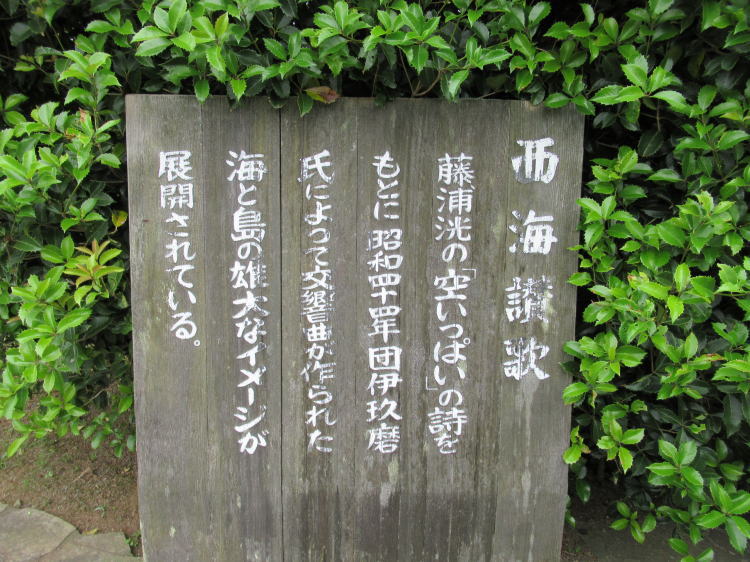 西海讃歌
藤浦洸の「空いっぱい」の詩を
もとに昭和四十四年団伊玖磨
氏によって交響曲が作られた
海と島の雄大なイメージが
展開されている。